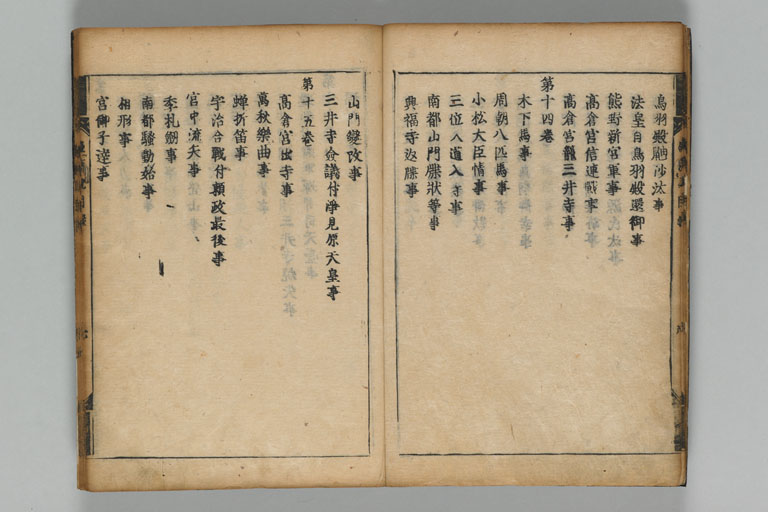 鳥羽殿鼬沙汰事
法皇自鳥羽殿還御事
熊野新宮軍事
高倉宮信連戰事
高倉宮籠三井寺事
第十四巻
木下馬事
周朝八匹馬事
小松大臣情事
三位入道入寺事
南都山門牒状等事
興福寺返牒事
山門變改事
三井寺僉議付浄見原天皇事
第十五巻
高倉宮出寺事
萬秋樂曲事
蝉折笛事
宇治合戰付頼政最後事
宮中流矢事
季札劔事
南都騒動始事
相形事
宮御子達事